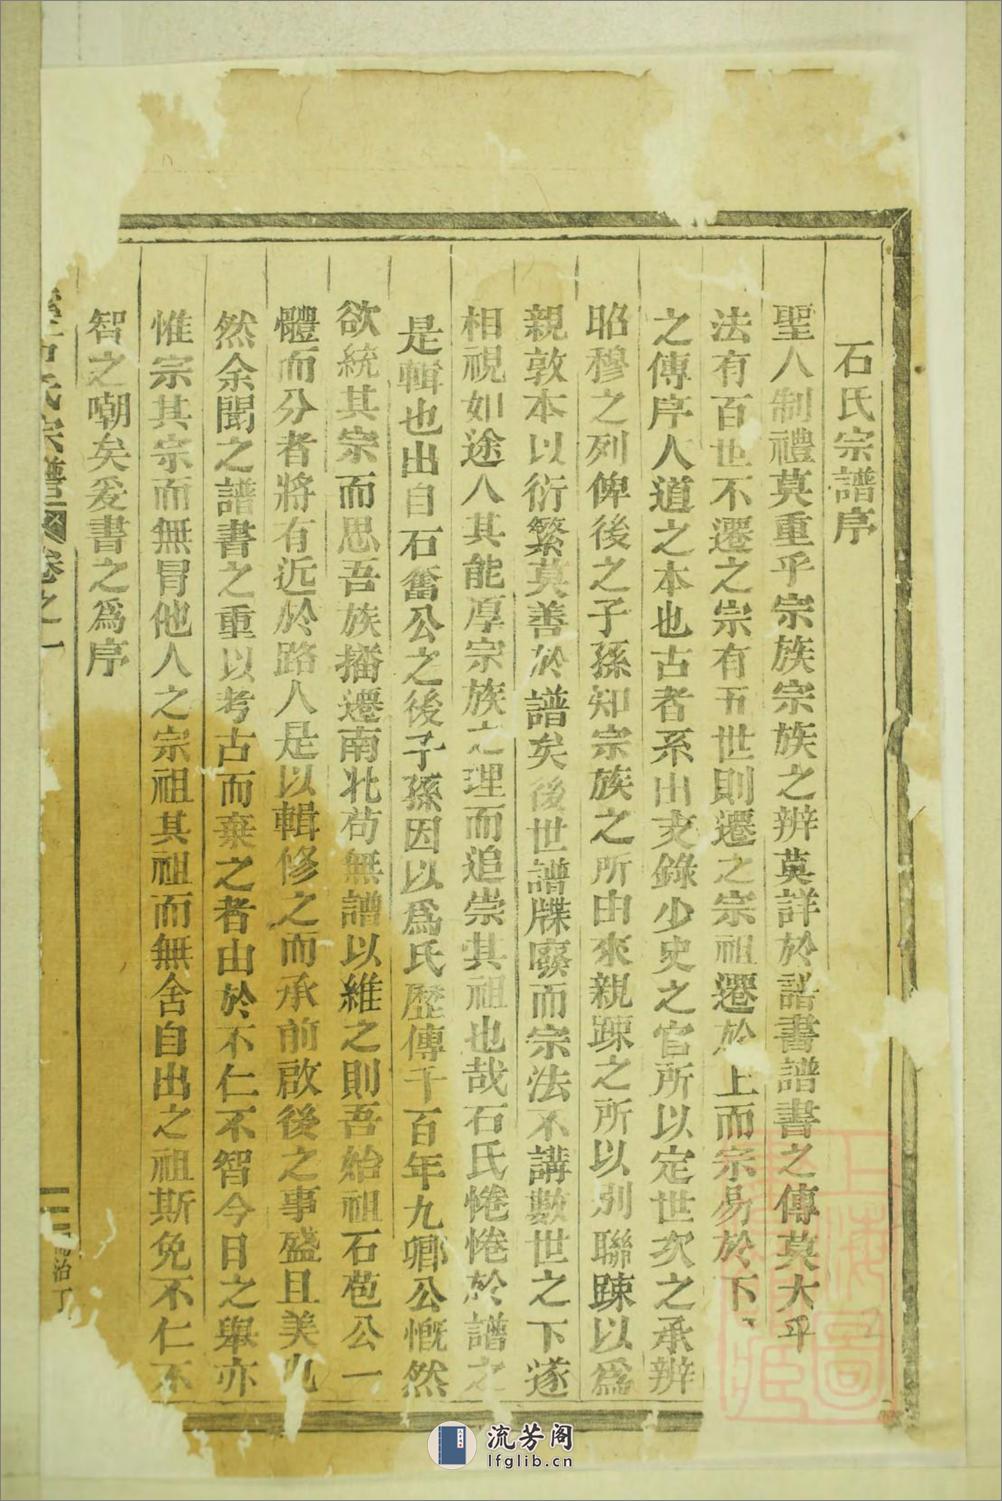 石氏宗譜序
聖人制禮莫重乎宗族宗族之辨莫詳於譜書譜書之傳莫大乎
法有百世不遷之宗有五世則遷之宗祖遷於上而宗易於下
之傳序人道之本也古者系出支錄少史之官所以定世次之承辨
昭穆之列俾後之子孫知宗族之所由來親踈之所以別聯踈以爲
親敦本以衍繁莫善於譜矣後世譜牒廢而宗法不講數世之下遂
相視如途人其能厚宗族之理而追崇其祖也哉石氏惓惓於譜之
是輯也出自石奮公之後子孫因以爲氏歷傳千百年九卿公慨然
欲統其宗而思吾族播遷南北苟無譜以維之則吾始祖石苞公一
體而分者將有近於路人是以輯修之而承前啟後之事盛且美九
然余聞之譜書之重以考古而棄之者由於不仁不智今日之舉亦
惟宗其宗而無冒他人之宗祖其祖而無舍自出之祖斯免不仁不
智之嘲矣爰書之爲序
氏宗譜 卷之一
治丁
上海圖
流芳阁
lfglib.cn